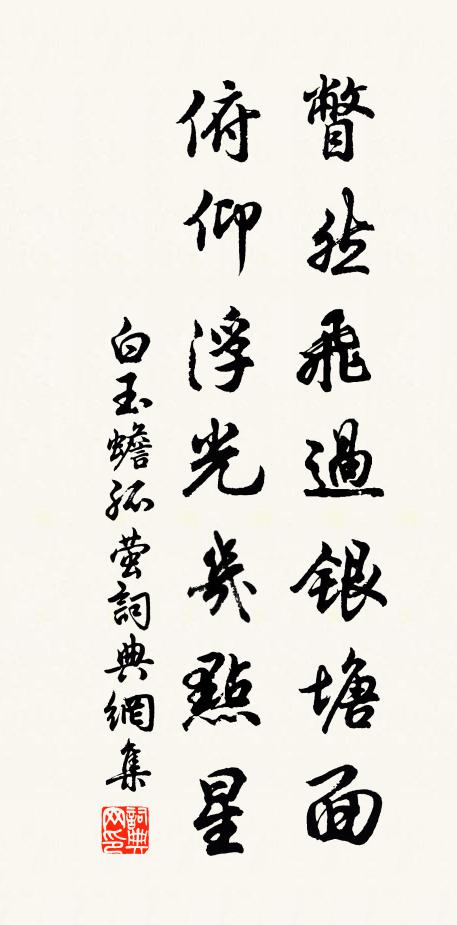 瞥然飛過銀塘面
俯仰浮光幾點星
白玉蟾孤萤詞典網集
詞典网印